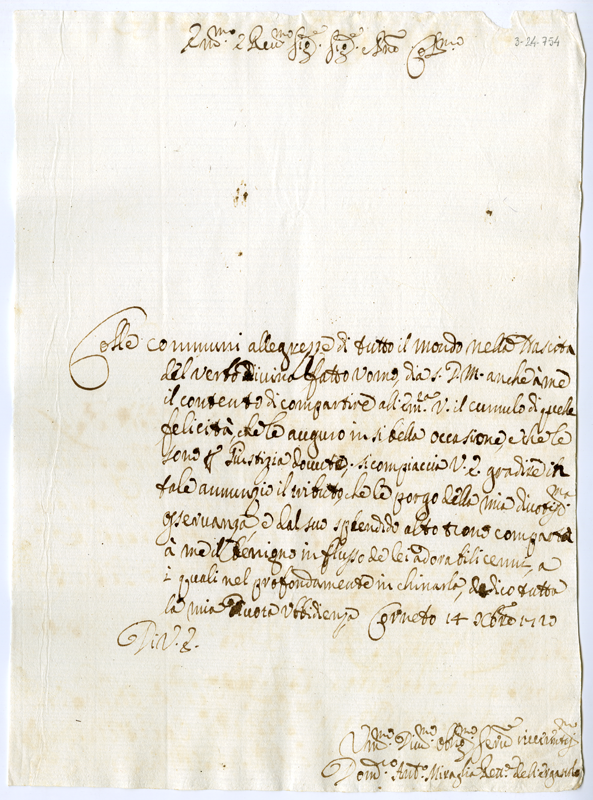 Em.mo e Rev.mo Sig.e Sig.e Pne Col.mo
3-24-754
Colle communi allegrezze di tutto il mondo nella Nascita
del Verbo divino fatto Vomo, dia S. D. M. anche à me
il contento di compartire all'Em.za V. il cumulo di quelle
felicità, che le auguro in si bella occasione, e che le
sono p Giustizia dovute. si compiaccia V. E. gradire in
tale annunzio il tributo, che le porgo della mia divotis.ma
osservanza, e dal suo splendido alto trono comparta
à me il benigno influsso de lei adorabili cenni, a
i quali nel profondamente inchinarla, dedico tutta
la mia divota Vbbidienza Corneto 14 Xbre 1720
Di V. E.
Vm.mo Div.mo Obl.mo Serve
Dom.co Ant.o Miraglia Ret.e dell'ergastolo